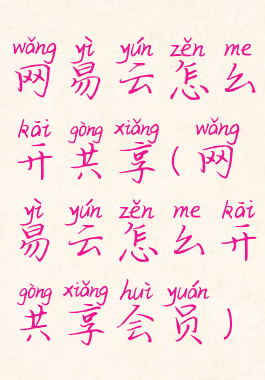 wǎng yì yún zěn me
网易云怎么
kāi gòng xiǎng wǎng
开共享(网
yì yún zěn me kāi
易云怎么开
gòng xiǎng huì yuán
共享会员)